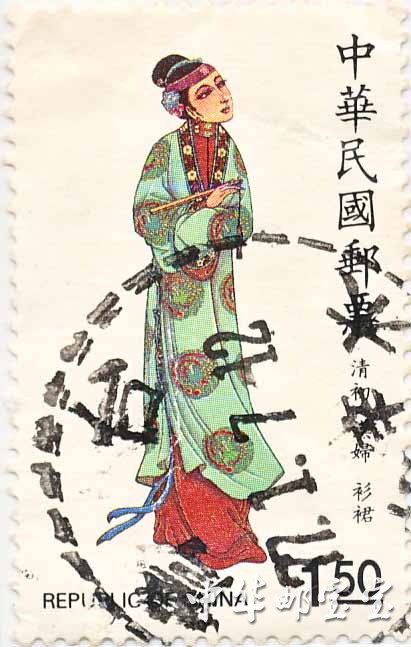 中華民國郵票
清初 婦 衫裙
1 50
REPUBLIC OF CHINA
中华邮宝宝